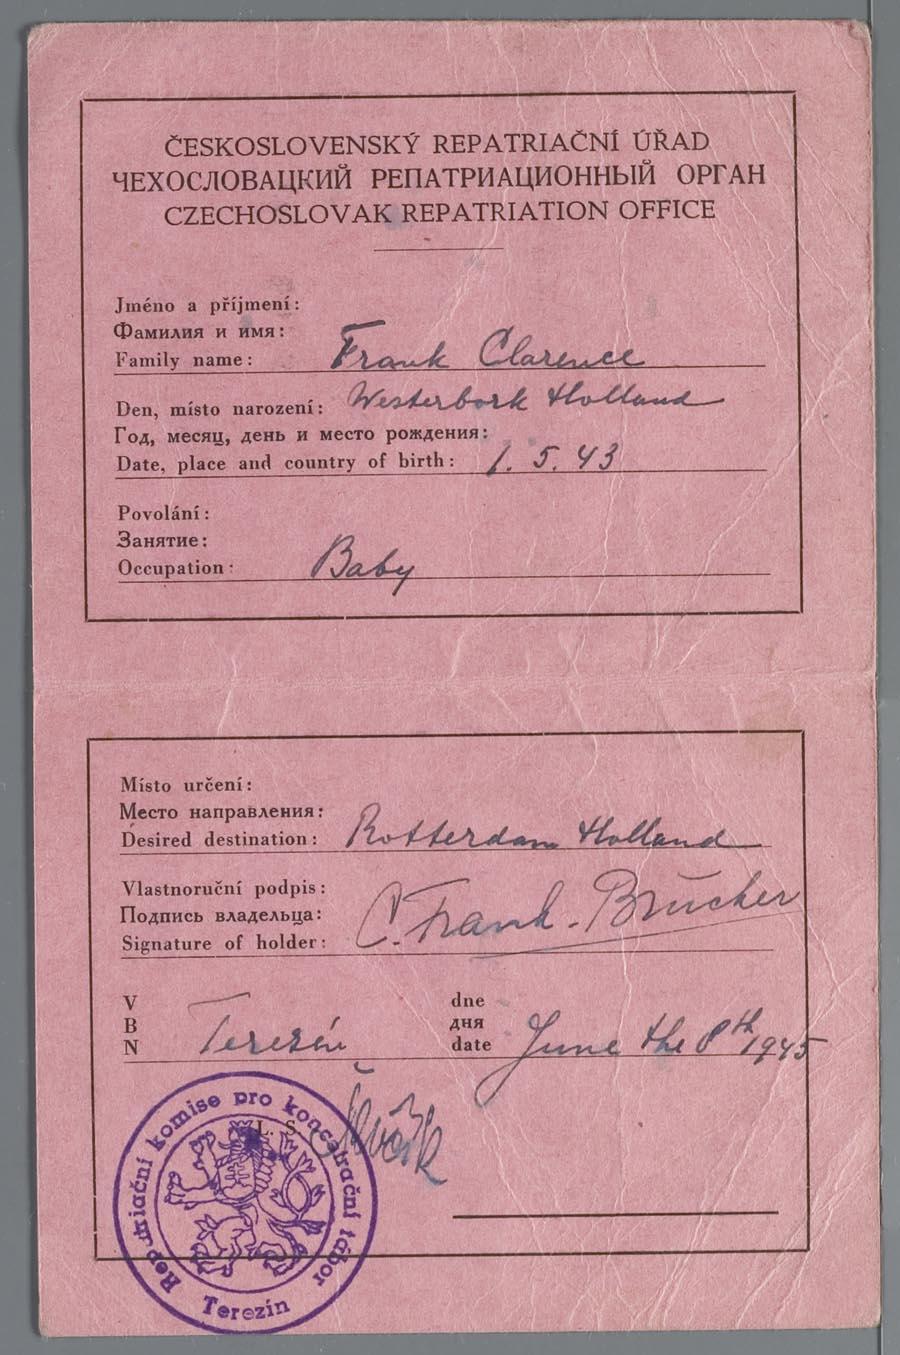 ČESKOSLOVENSKÝ REPATRIAČNÍ ÚŘAD
ЧЕХОСЛОВАЦКИЙ РЕПАТРИАЦИОННЫЙ ОРГАН
CZECHOSLOVAK REPATRIATION OFFICE
Jméno a příjmení:
Фамилия и имя:
Family name: Frank Clarence
Den, místo narození: Westerbork Holland
Год, месяц, день и место рождения:
Date, place and country of birth: 1. 5. 43
Povolání:
Занятие:
Occupation: Baby
Místo určení:
Место направления:
Desired destination: Rotterdam Holland
Vlastnoruční podpis:
Подпись владельца:
Signature of holder: C. Frank-Brücher
V dne
В дня
N Terezín date June the 8th 1945
L. S.
Repatriační komise pro koncetrační tábor
Terezín